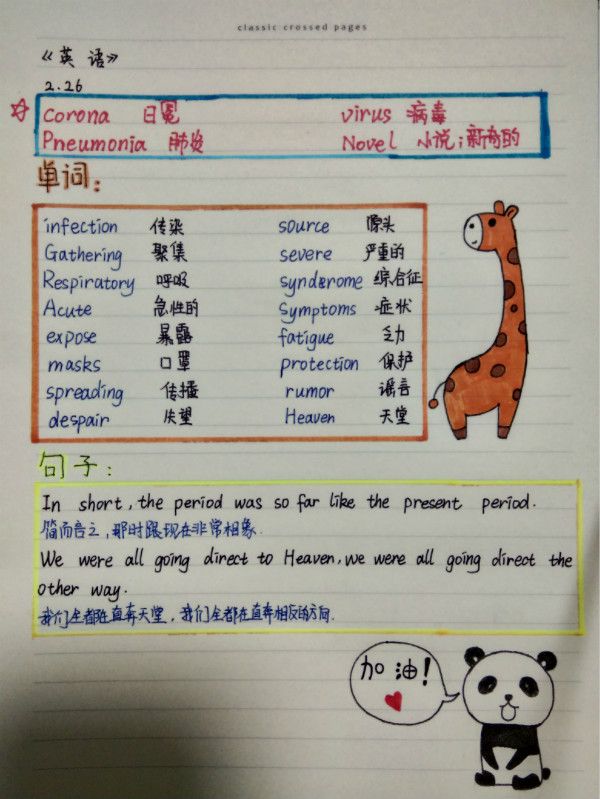 classic crossed pages
《英语》
2.26
☆ Corona 日冕 virus 病毒
Pneumonia 肺炎 Novel 小说；新奇的
单词：
infection 传染 source 源头
Gathering 聚集 severe 严重的
Respiratory 呼吸 synderome 综合征
Acute 急性的 Symptoms 症状
expose 暴露 fatigue 乏力
masks 口罩 protection 保护
spreading 传播 rumor 谣言
despair 失望 Heaven 天堂
句子：
In short, the period was so far like the present period.
简而言之，那时跟现在非常相象.
We were all going direct to Heaven, we were all going direct the
other way.
我们全都在直奔天堂，我们全都在直奔相反的方向.
加油！